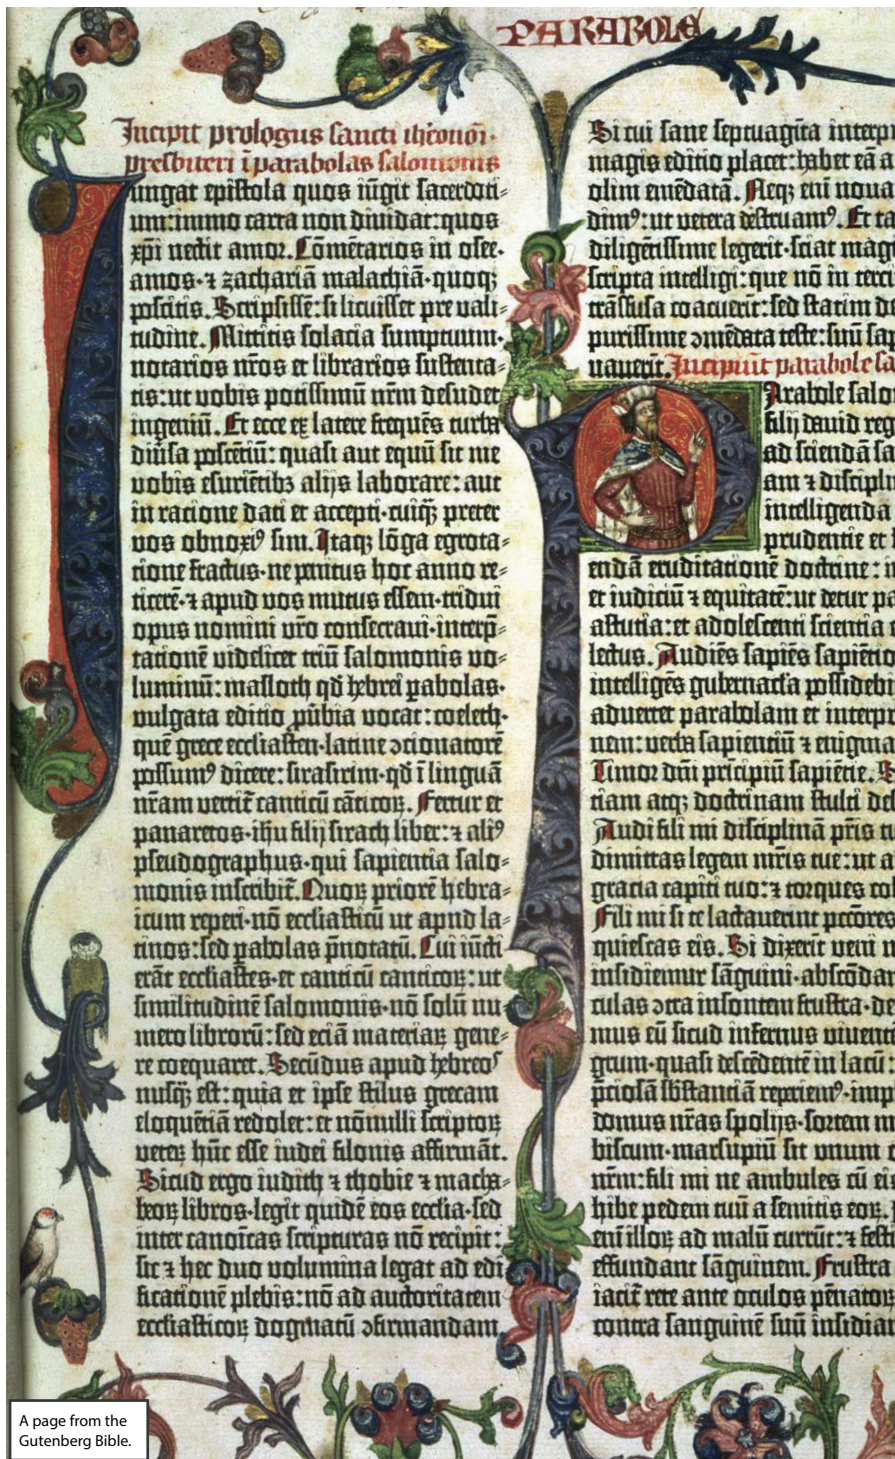 PARABOLE
Incipit prologus sancti iheronimi
presbiteri ī parabolas salomonis
Iungat epistola quos iūgit sacerdoti=
um: immo carta non dividat: quos
xpī nectit amor. Cōmētarios in osee.
amos. ⁊ zachariā malachiā. quoqꝫ
poscitis. Scripsissē: si licuisset pre vali=
tudine. Mittitis solacia sumptuum.
notarios nr̄os et librarios sustenta=
tis: ut vobis potissimū nr̄m desudet
ingeniū. Et ecce ex latere frequēs turba
diūsa poscētiū: quasi aut equū sit me
vobis esuriētibꝫ alijs laborare: aut
in racione dati et accepti. cuiqꝫ preter
vos obnoxiꝰ sim. Itaqꝫ lōga egrota=
tione fractus. ne penitus hoc anno re=
ticerē. ⁊ apud vos mutus essem. tridui
opus nomini vr̄o consecravi. interp̄=
tationē videlicet triū salomonis vo=
luminū: masloth qd̄ hebrei ꝑabolas.
vulgata editio ꝓūbia vocat: coeleth.
quē grece ecclīasten. latine ↄcionatorē
possumꝰ dicere: sirasirim. qd̄ ī linguā
nr̄am vertit̄ canticū cāticoꝝ. Fertur et
panaretos. ih̄u filij sirach liber: ⁊ aliꝰ
pseudographus. qui sapientia salo=
monis inscribit̄. Quoꝝ priorē hebra=
icum reperi. nō ecclīasticū ut apud la=
tinos: sed ꝑabolas p̄notatū. Cui iūcti
erāt ecclīastes. et canticū canticoꝝ: ut
similitudinē salomonis. nō solū nu=
mero librorū: sed eciā materiaꝝ gene=
re coequaret. Secūdus apud hebreos
nusqꝫ est: quia et ipse stilus grecam
eloquētiā redolet: et nōnulli scriptoꝝ
veteꝝ hūc esse iudei filonis affirmāt.
Sicud ergo iudith ⁊ thobie ⁊ macha=
beoꝝ libros. legit quidē eos ecclīa. sed
inter canonīcas scripturas nō recipit:
sic ⁊ hec duo volumina legat ad edi
ficationē plebis: nō ad auctoritatem
ecclīasticoꝝ dogmatū ↄfirmandam
Si cui sane septuagīta interp
magis editio placet: habet eā a
olim emēdatā. Neqꝫ enī nova
dimꝰ: ut vetera destruamꝰ. Et ta
diligētissime legerit. sciat magi
scripta intelligi: que nō in terci
trāsfusa coacuerit: sed statim de
purissime ↄmēdata teste: suū sap
vaverit. Incipiūt parabole sa
Parabole salo
filij david reg
ad sciendā sa
am ⁊ disciplin
intelligenda
prudentie et
endā eruditationē doctrine: i
et iudiciū ⁊ equitatē: ut detur pa
astutia: et adolescenti scientia e
lectus. Audiēs sapiēs sapiētio
intelligēs gubernacła possidebi
advertet parabolam et interpr
nem: verba sapientiū ⁊ enigma
Timor dn̄i prīcipiū sapiētie. S
tiam atqꝫ doctrinam stulti des
Audi fili mi disciplinā pr̄is tu
dimittas legem mr̄is tue: ut a
gracia capiti tuo: ⁊ torques col
Fili mi si te lactaverint pc̄cōres
quiescas eis. Si dixerīt veni n
insidiemur sāguini. abscōdam
culas ↄtra insontem frustra. de
mus eū sicud infernus vivente
grum. quasi descēdentē in lacū:
p̄ciosā sb̄stanciā repiemꝰ. imp
domus nr̄as spolijs. sortem m
biscum. marsupiū sit unum o
nr̄m: fili mi ne ambules cū eis
hibe pedem tuū a semitis eoꝝ.
enī illoꝝ ad malū currūt: ⁊ festi
effundant sāguinem. Frustra
iacit̄ rete ante oculos pēnatoꝝ
contra sanguinē suū insidian
A page from the
Gutenberg Bible.